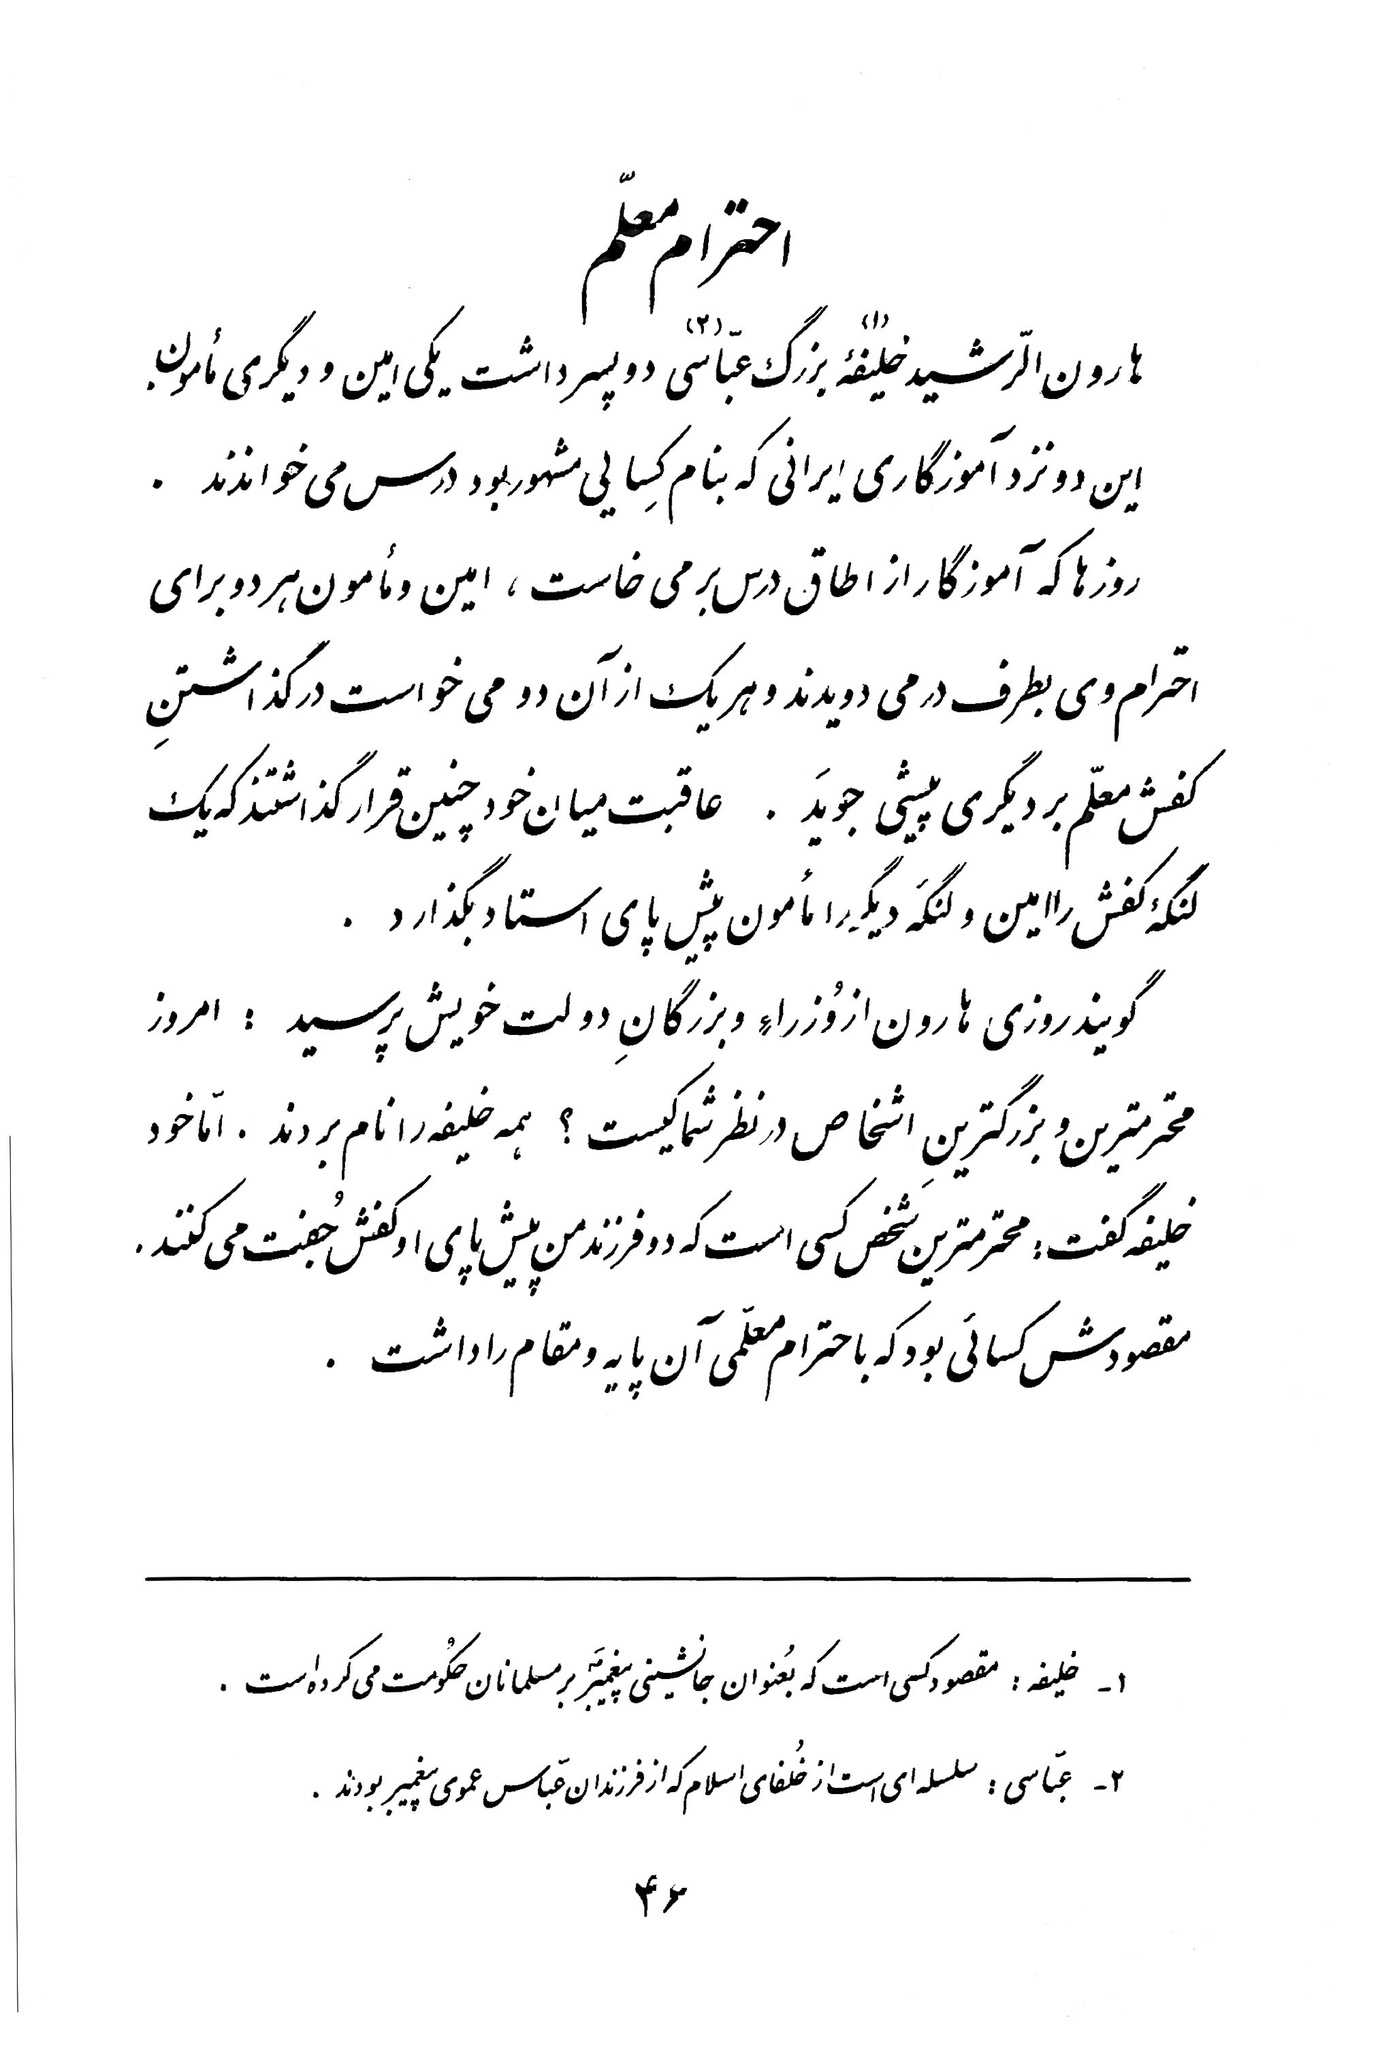 احترام معلّم
هارون الرّشید خلیفهٔ (۱) بزرگ عبّاسی (۲) دو پسر داشت یکی امین و دیگری مأمون .
این دو نزد آموزگاری ایرانی که بنام کِسایی مشهور بود درس می خواندند .
روزها که آموزگار از اطاق درس بر می خاست ، امین و مأمون هر دو برای
احترام وی بطرف در می دویدند و هر یک از آن دو می خواست در گذاشتنِ
کفش معلّم بر دیگری پیشی جویَد . عاقبت میان خود چنین قرار گذاشتند که یک
لنگهٔ کفش را امین و لنگهٔ دیگر را مأمون پیش پای استاد بگذارد .
گویند روزی هارون از وُزراءِ و بزرگانِ دولت خویش پرسید : امروز
محترمترین و بزرگترینِ اشخاص در نظر شما کیست ؟ همه خلیفه را نام بردند . امّا خود
خلیفه گفت : محترمترین شخص کسی است که دو فرزند من پیش پای او کفش جُفت می کنند .
مقصودش کسائی بود که با احترام معلّمی آن پایه و مقام را داشت .
۱ـ خلیفه : مقصود کسی است که بعُنوان جانشینی پیغمبَر بر مسلمانان حکُومت می کرده است .
۲ـ عبّاسی : سلسله ای است از خُلفای اسلام که از فرزندان عبّاس عموی پیغمبر بودند .
۴۶